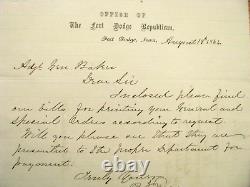 OFFICE OF
The Fort Dodge Republican,
Fort Dodge, Iowa, August 18 1862
Adjt Gen Baker
Dear Sir
Inclosed please find
our bills for printing your General and
Special Orders according to request.
Will you please see that they are
presented to the proper Department for
payment.
Truly Yours